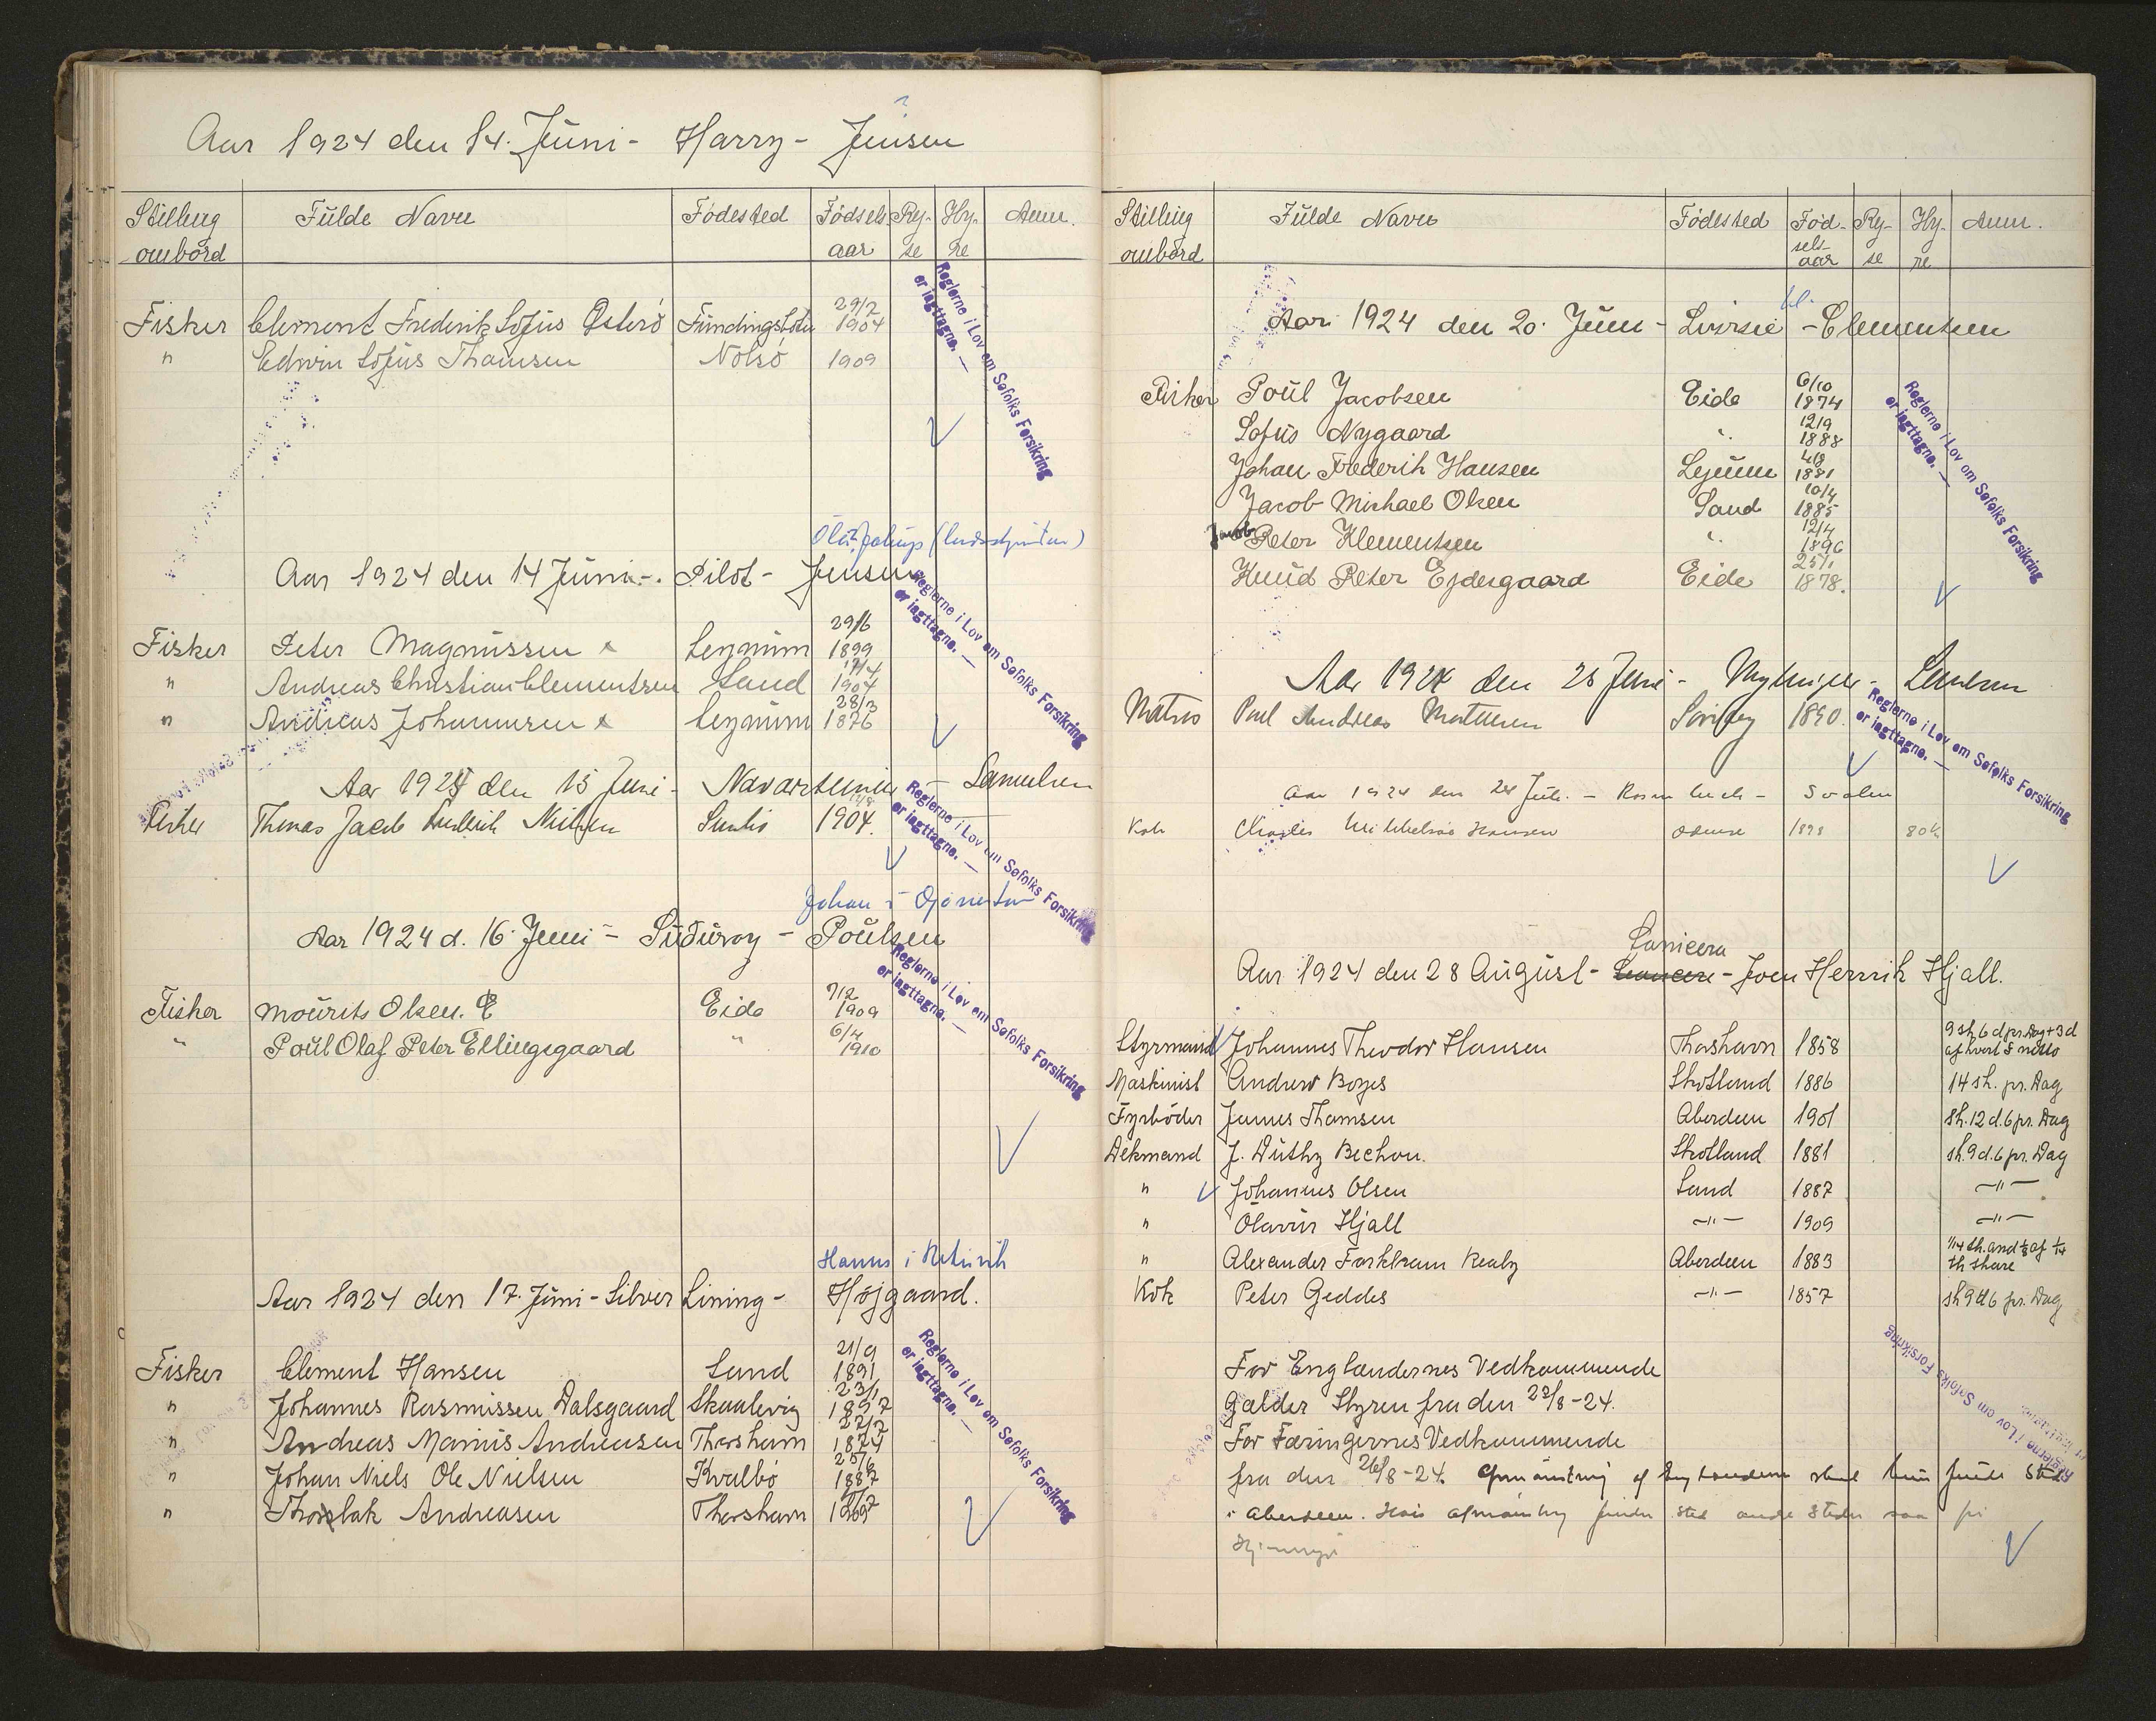 Aar 1924 den 14. Juni - Harry - Jensen
Stilling ombord Fulde Navn Fødested Fødsels aar Hy- se Hy- re Anm.
Fisker Clement Frederik Sofus Østerø Fundingsbotn 29/2 1904
" Edwin Sofus Thomsen Nolsö 1909
Reglerne i Lov om Søfolks Forsikring
er iagttagne. —
Aar 1924 den 14 Juni - Pilot - Jensen
Fisker Peter Magnussen x Leynum 29/6 1899
" Andreas Christian Clementsen Sand 1904
" Andreas Johannesen x Leynum 28/3 1876
Reglerne i Lov om Søfolks Forsikring
er iagttagne. —
Aar 1924 den 15 Juni - - Samuelsen
Fisker Thomas Jacob Nielsen 1904.
Reglerne i Lov om Søfolks Forsikring
er iagttagne. —
Johan i
Aar 1924 d. 16. Juni - Suduroy - Poulsen
Fisker Mourits Olsen. E Eide 7/2 1909
" Poul Olaf Peter Ellingsgaard " 6/4 1910
Reglerne i Lov om Søfolks Forsikring
er iagttagne. —
Hanus i
Aar 1924 den 17. Juni - Silver Lining - Højgaard.
Fisker Clement Hansen Sand 21/9 1891
" Johannes Rasmussen Dalsgaard Skaalevig 23/1 1897
" Andreas Marius Andreasen Thorshavn 27/7 1874
" Johan Niels Ole Nielsen Kvalbø 25/6 1887
" Thorlak Andreasen Thorshavn
Reglerne i Lov om Søfolks Forsikring
er iagttagne. —
Stilling ombord Fulde Navn Fødested Fød- sels- aar Ry- se Hy- re Anm.
Aar 1924 den 20. Juni - Lovise - Clementsen
Fisker Poul Jacobsen Eide 6/10 1874
Sofus Nygaard " 12/9 1888
Johan Frederik Hansen Lejnum 4/8 1881
Jacob Michael Olsen Sand 10/4 1885
Jacob Peter Klementsen " 12/4 1896
Knud Peter Ejdesgaard Eide 25/1 1878.
Reglerne i Lov om Søfolks Forsikring
er iagttagne. —
Aar 1924 den 28 Juni -
Matros Poul Andreas Mortensen 1890.
Reglerne i Lov om Søfolks Forsikring
er iagttagne. —
Aar 1924 den 24 Juli. -
Kok Charles Hansen Odense 1898 80 Kr
Aar 1924 den 28 August - Lonicera - Joen Henrik Hjall.
Styrmand Johannes Theodor Hansen Thorshavn 1858 9 sh. 6 d pr. Dag + 3 d af hvert £ netto
Maskinist Andrew Boyes Skotland 1886 14 sh. pr. Dag
Fyrbøder James Thomsen Aberdeen 1901 sh. 12 d. 6 pr. Dag
Dekmand J. Duthy Buchan. Skotland 1881 sh. 9 d. 6 pr. Dag
" Johannes Olsen Sand 1887 — " —
" Olavur Hjall — " — 1909 — " —
" Alexander Realy Aberdeen 1883 1/14 sh. and 1/8 of 1/14 th share
Kok Peter Geddes — " — 1857 sh 9 d 6 pr. Dag
For Englændernes Vedkommende
gælder Hyren fra den 22/8 - 24.
For Færingernes Vedkommende
fra den 26/8 - 24. Afmønstring af Englænderne skal kun finde Sted
i Aberdeen. Hvis afmønstring finder sted andre Steder saa fri
Hjemrejse
Reglerne i Lov om Søfolks Forsikring
er iagttagne.